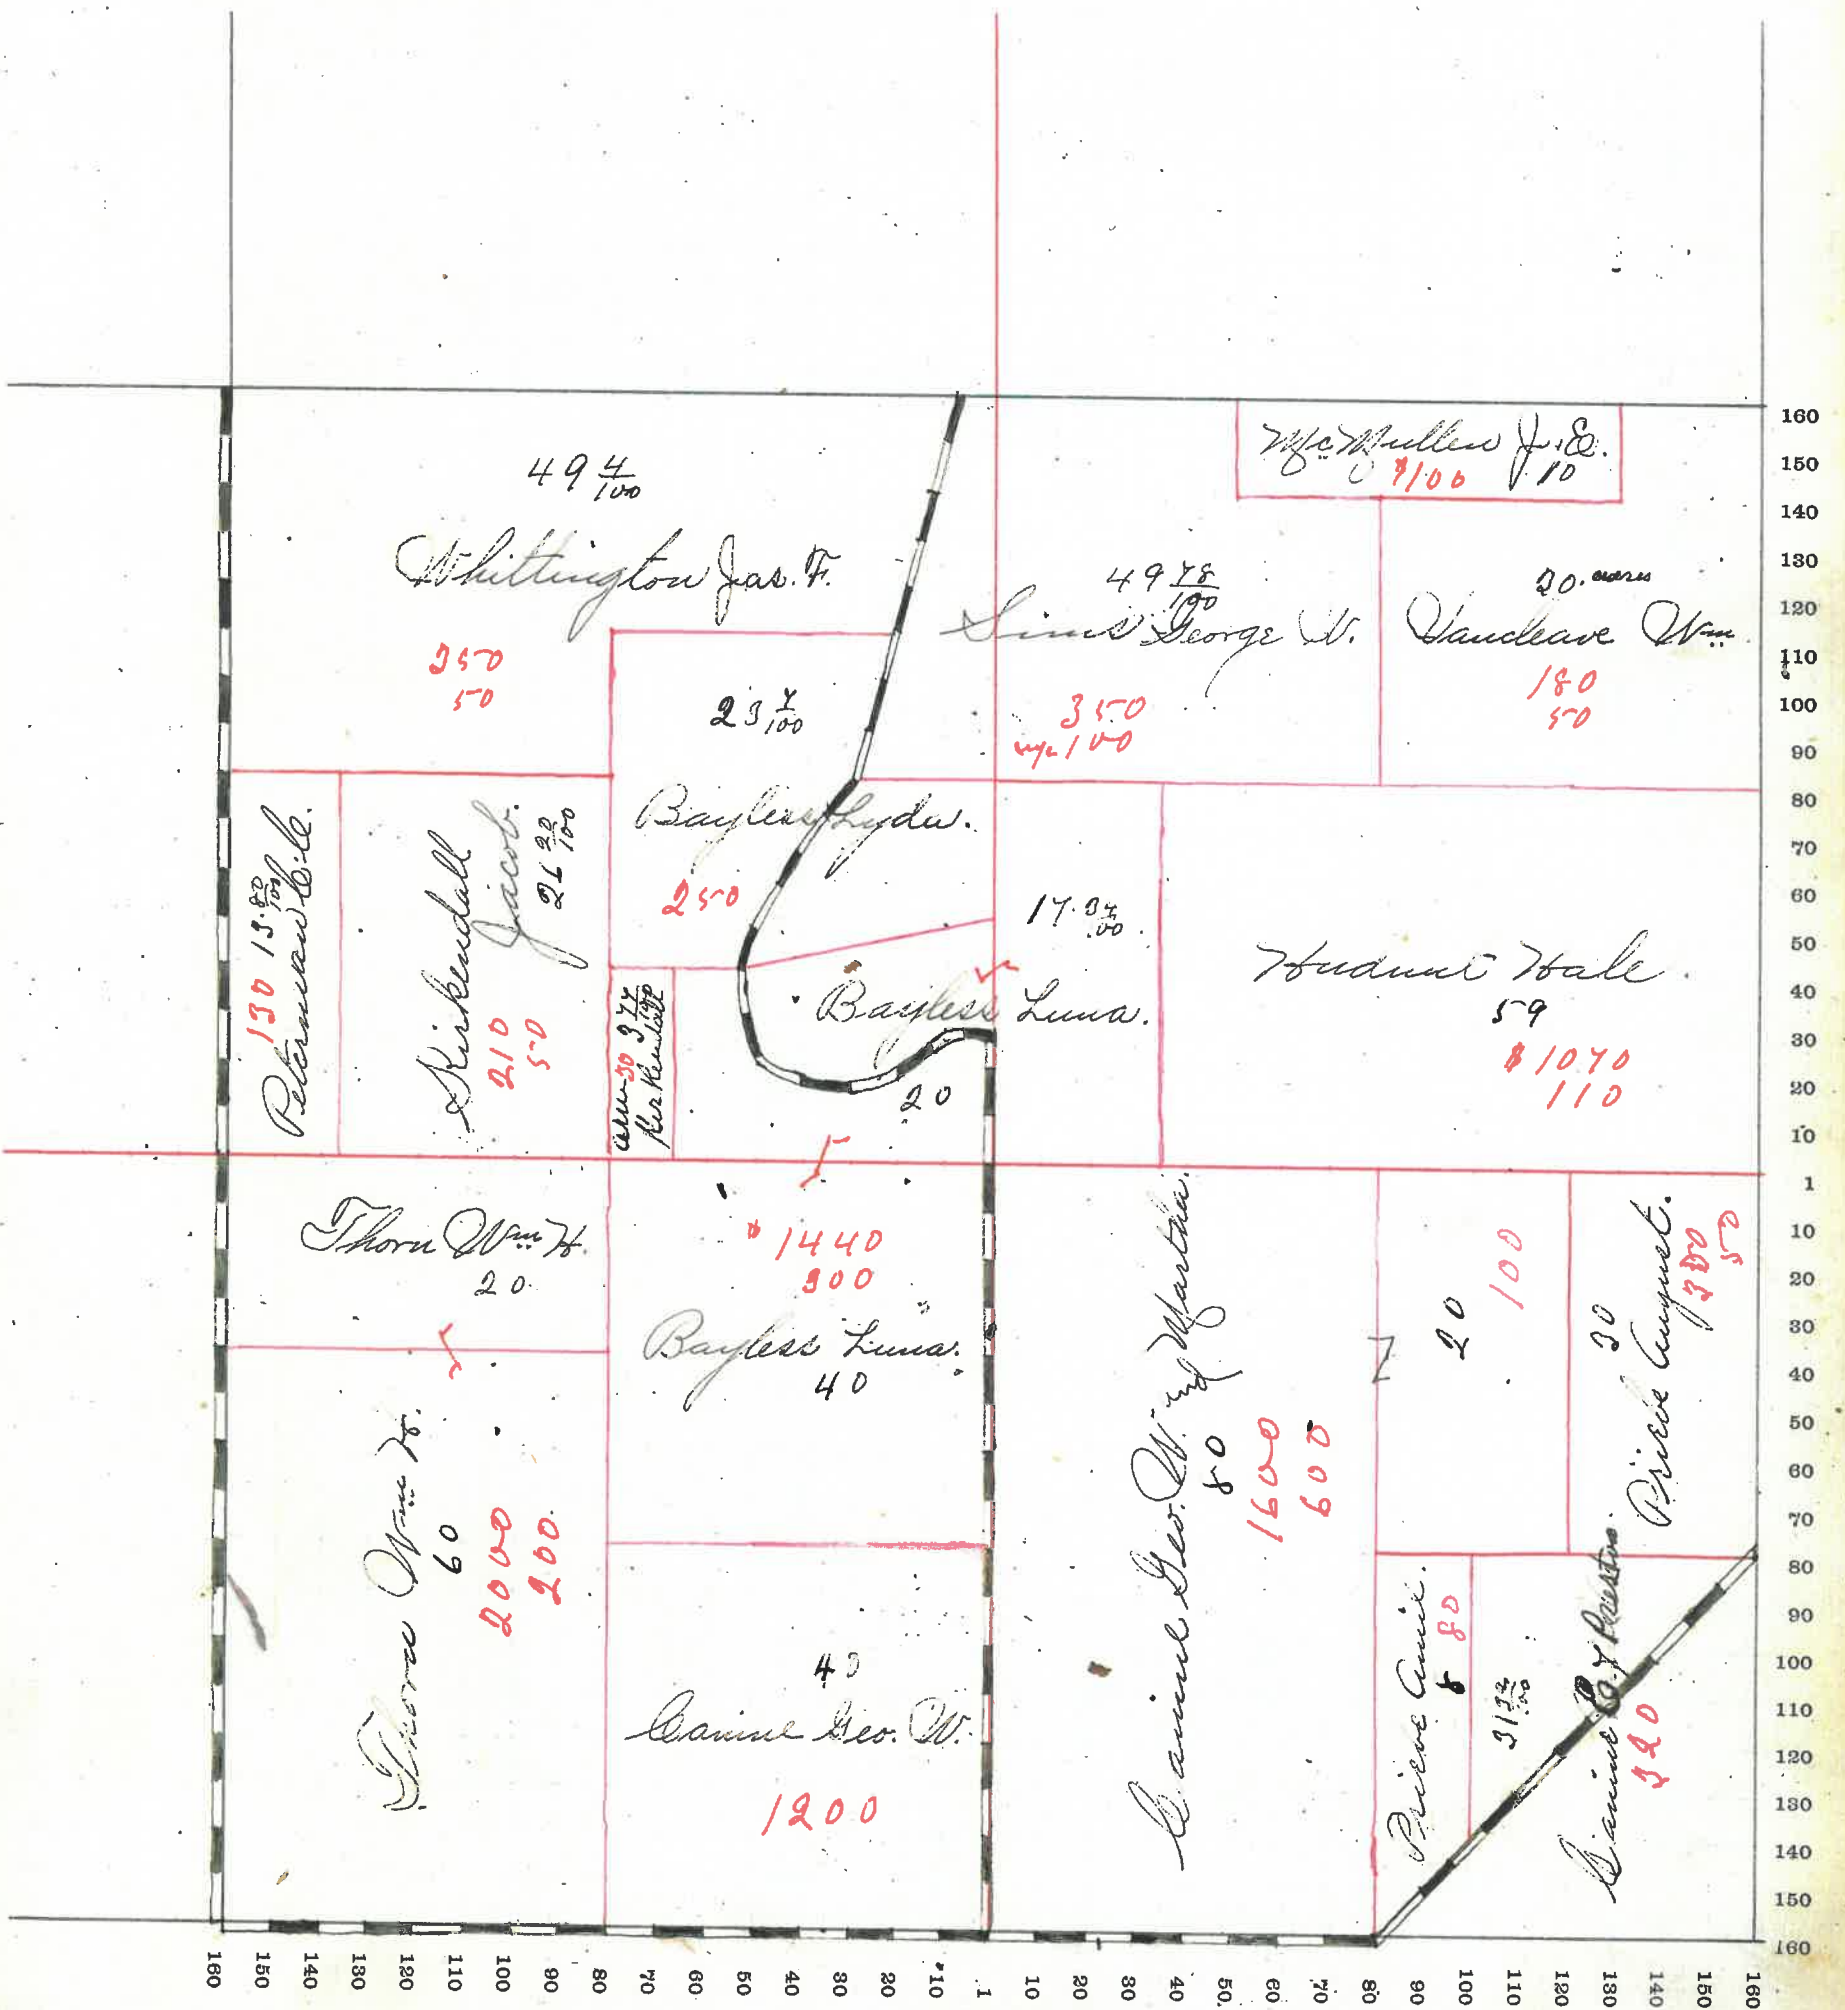 49 4/100
Whittington Jas. F.
250
50
McMullen J. E.
$100 10
49 78/100
Sims George W.
350
100
20 acres
Vancleave Wm
180
50
23 7/100
Bayless Lyda.
250
130 13 80/100
Peterman C. C.
Kirkendall
Jacob.
26 20/100
210
50
Kirkendall
17.34/100
Bayless Luna.
20
Hudnut Hale.
59
$1070
110
Thorn Wm H.
20
$1440
300
Bayless Luna.
40
Thorn Wm H.
60
2000
200
40
Canine Geo. W.
1200
Canine Geo. W. and Martha.
80
1600
600
20
100
30
Prieve August.
300
50
Prieve Amie.
8 80
Canine
Preston.
320
160
150
140
130
120
110
100
90
80
70
60
50
40
30
20
10
1
10
20
30
40
50
60
70
80
90
100
110
120
130
140
150
160
160 150 140 130 120 110 100 90 80 70 60 50 40 30 20 10 1 10 20 30 40 50 60 70 80 90 100 110 120 130 140 150 160